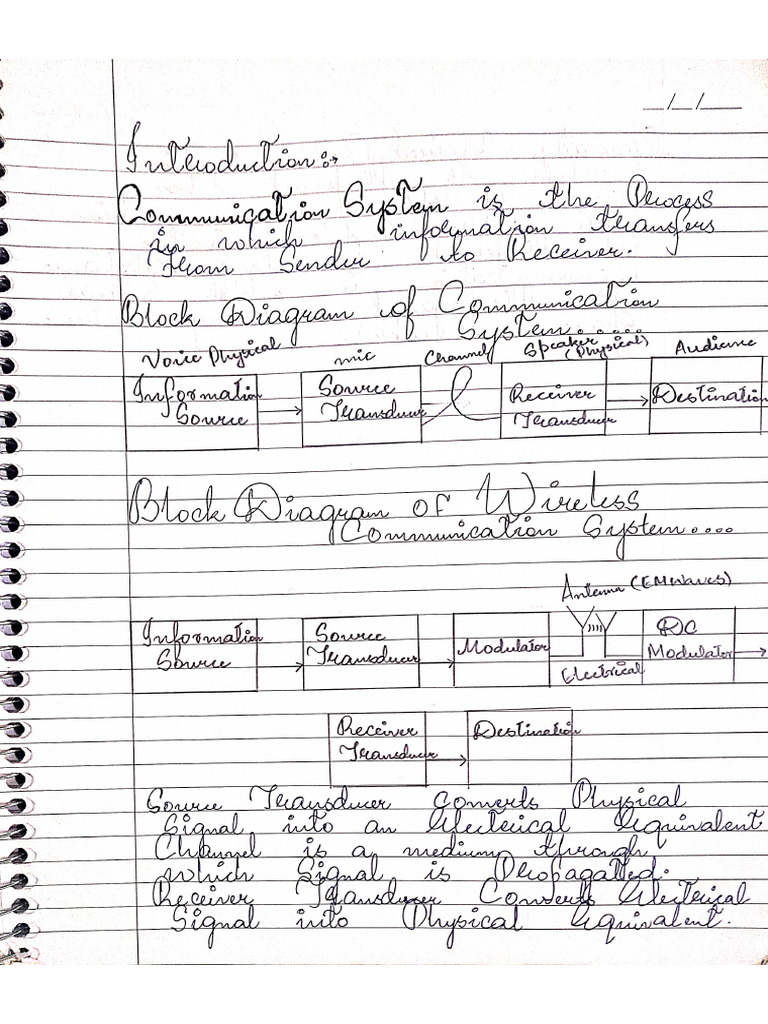 _/_/__
Introduction:→
Communication System is the Process
in which information transfers
from Sender to Receiver.
Block Diagram of Communication
System.....
Voice Physical mic Channel Speaker (Physical) Audience
Information Source Receiver Destination
Source Transducer Transducer
Block Diagram of Wireless
Communication System....
Antenna (EM Waves)
Information Source Modulator DC
Source Transducer Modulator
Electrical
Receiver Destination
Transducer
Source Transducer Converts Physical
Signal into an Electrical Equivalent
Channel is a medium through
which Signal is Propagatted.
Receiver Transducer Converts Electrical
Signal into Physical Equivalent.